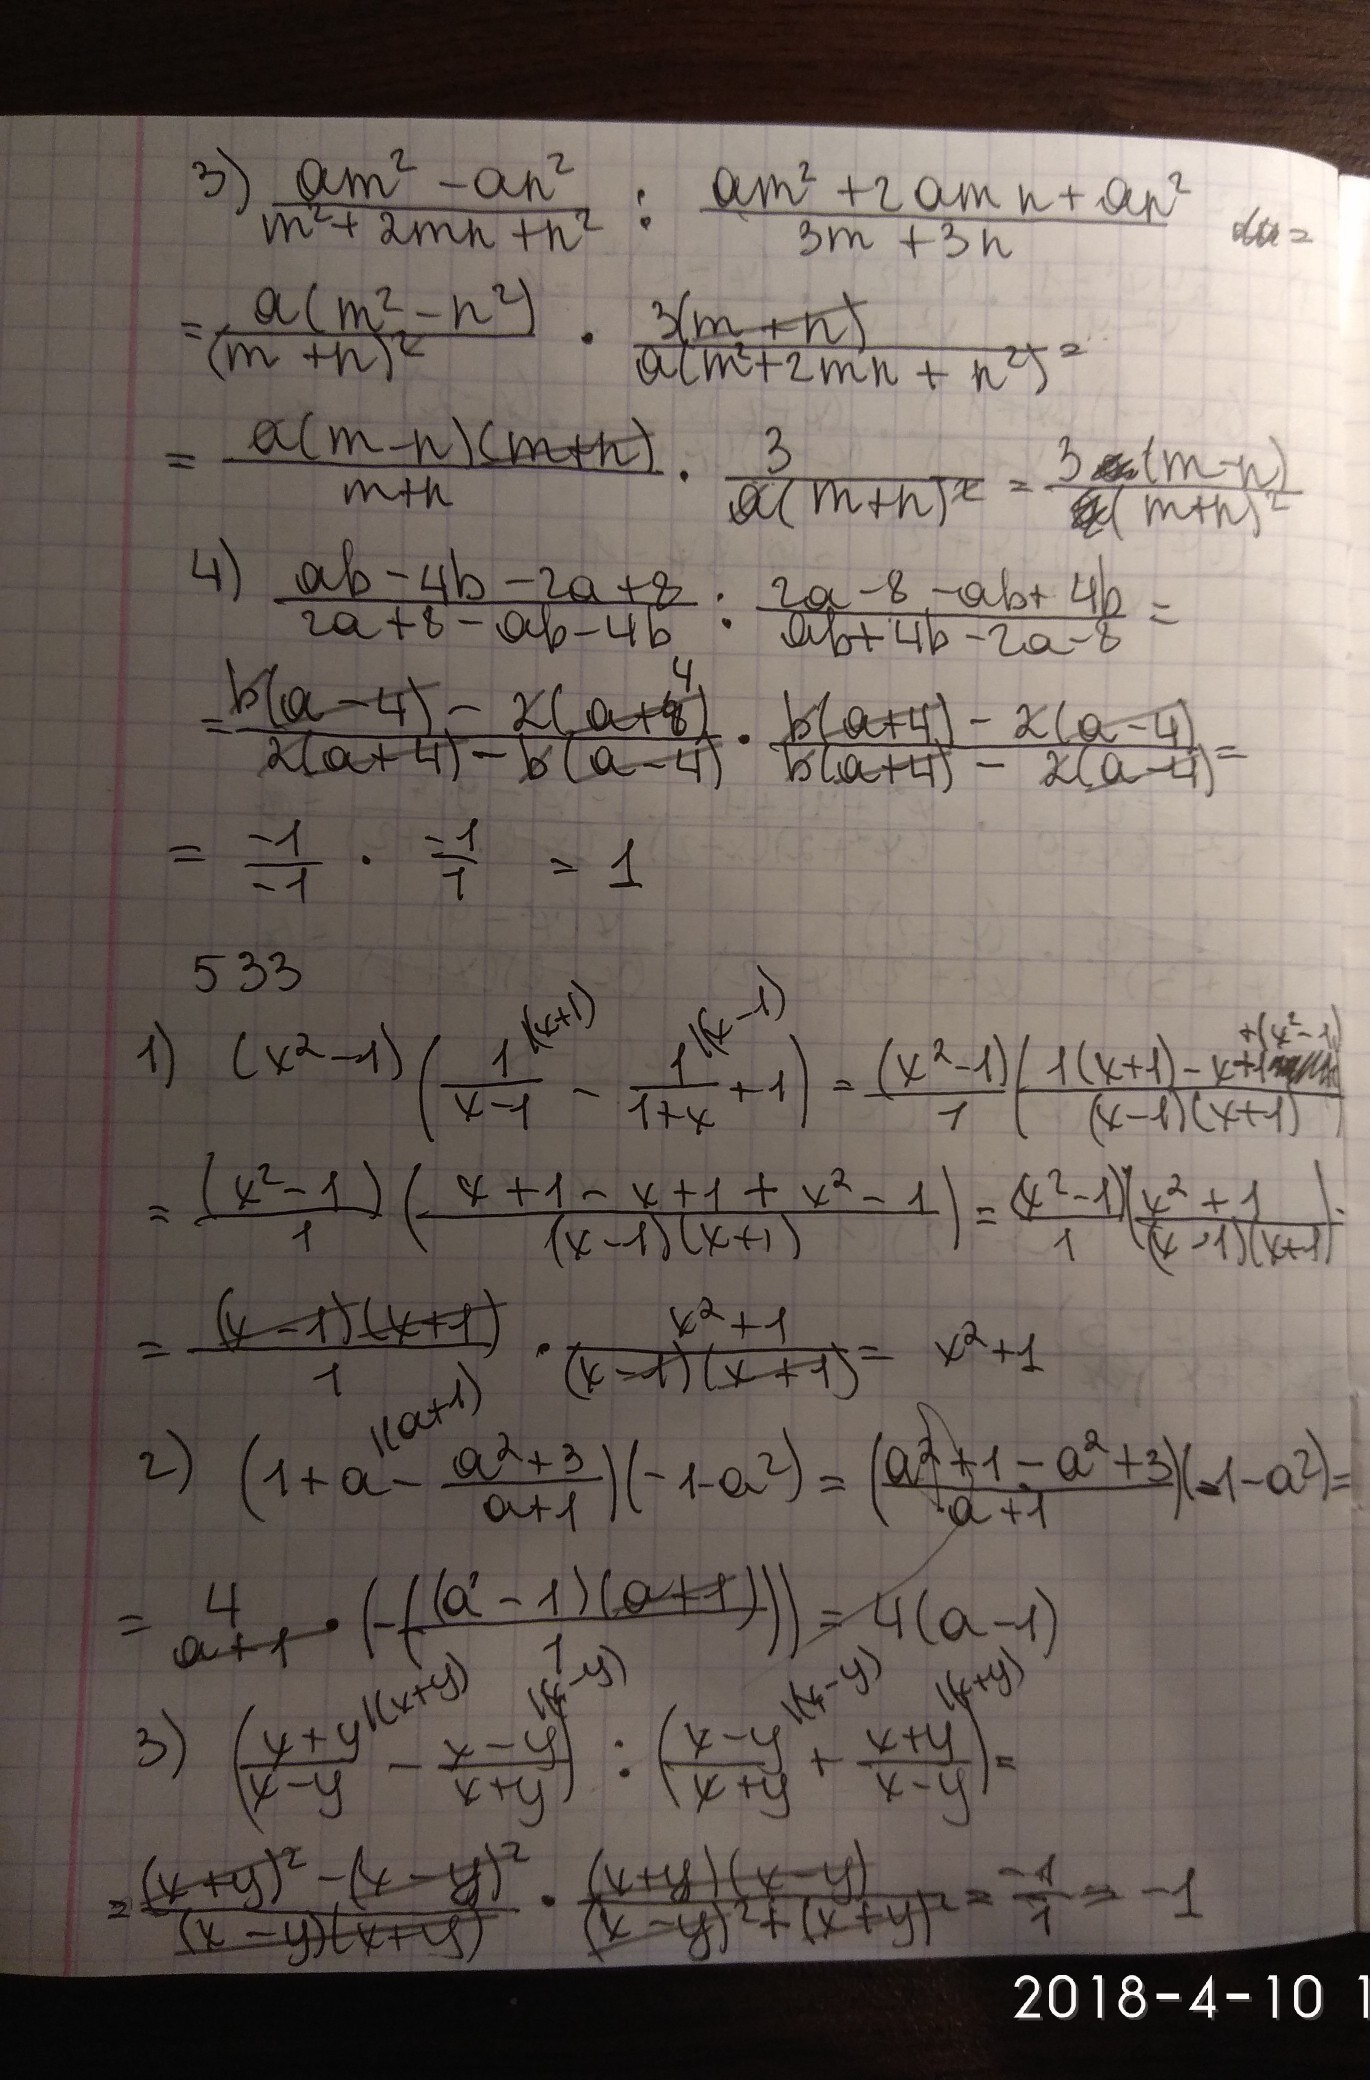 3) (am² - an²)/(m² + 2mn + n²) : (am² + 2amn + an²)/(3m + 3n) =
= a(m² - n²)/(m + n)² · 3(m + n)/a(m² + 2mn + n²) =
= a(m - n)(m + n)/(m + n) · 3/a(m + n)² = 3(m - n)/(m + n)²
4) (ab - 4b - 2a + 8)/(2a + 8 - ab - 4b) : (2a - 8 - ab + 4b)/(ab + 4b - 2a - 8) =
= (b(a - 4) - 2(a + 4))/(2(a + 4) - b(a - 4)) · (b(a + 4) - 2(a - 4))/(b(a + 4) - 2(a - 4)) =
= -1/-1 · -1/1 = 1
533
1) (x² - 1)(1/(x - 1) |(x+1) - 1/(1 + x) |(x-1) + 1) = (x² - 1)/1 ((1(x + 1) - x + 1 + (x² - 1))/((x - 1)(x + 1)))
= (x² - 1)/1 ((x + 1 - x + 1 + x² - 1)/((x - 1)(x + 1))) = (x² - 1)/1 ((x² + 1)/((x - 1)(x + 1))) =
= (x - 1)(x + 1)/1 · (x² + 1)/((x - 1)(x + 1)) = x² + 1
2) (1 + a |(a+1) - (a² + 3)/(a + 1))(-1 - a²) = ((a² + 1 - a² + 3)/(a + 1))(-1 - a²) =
= 4/(a + 1) · (-((a - 1)(a + 1)/1)) = 4(a - 1)
3) ((x + y)/(x - y) |(x+y) - (x - y)/(x + y) |(x-y)) : ((x - y)/(x + y) |(x-y) + (x + y)/(x - y) |(x+y)) =
= ((x + y)² - (x - y)²)/((x - y)(x + y)) · ((x + y)(x - y))/((x - y)² + (x + y)²) = -1/1 = -1
2018-4-10 1